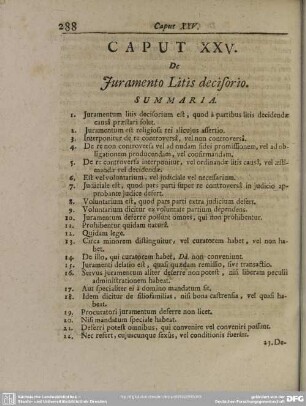 288 Caput XXV.
CAPUT XXV.
De
Juramento Litis decisorio.
SUMMARIA.
1. Juramentum litis decisorium est, quod à partibus litis decidendæ
causâ præstari solet.
2. Juramentum est religiosa rei alicujus assertio.
3. Interponitur de re controversâ, vel non controversâ.
4. De re non controversâ vel ad nudam fidei promissionem, vel ad obligationem
producendam, vel confirmandam.
5. De re controversa interponitur, vel ordinandæ litis causâ, vel æstimandæ
vel decidendæ.
6. Est vel voluntarium, vel judiciale vel necessarium.
7. Judiciale est; quod pars parti super re controversâ in judicio approbante
judice defert.
8. Voluntarium est, quod pars parti extra judicium defert.
9. Voluntarium dicitur ex voluntate partium dependens.
10. Juramentum deferre possunt omnes, qui non prohibentur.
11. Prohibentur quidam naturâ.
12. Quidam lege.
13. Circa minorem distinguitur, vel curatorem habet, vel non habet.
14. De illo, qui curatorem habet, Dd. non conveniunt.
15. Juramenti delatio est, quasi quædam remissio, sive transactio.
16. Servus juramentum aliter deferre non potest, nisi liberam peculii
administrationem habeat.
17. Aut specialiter ei à domino mandatum sit.
18. Idem dicitur de filiofamilias, nisi bona castrensia, vel quasi habeat.
19. Procuratori juramentum deferre non licet.
20. Nisi mandatum speciale habeat.
21. Deferri potest omnibus, qui convenire vel conveniri possunt.
22. Nec refert, cujuscunque sexûs, vel conditionis fuerint.
23. De-